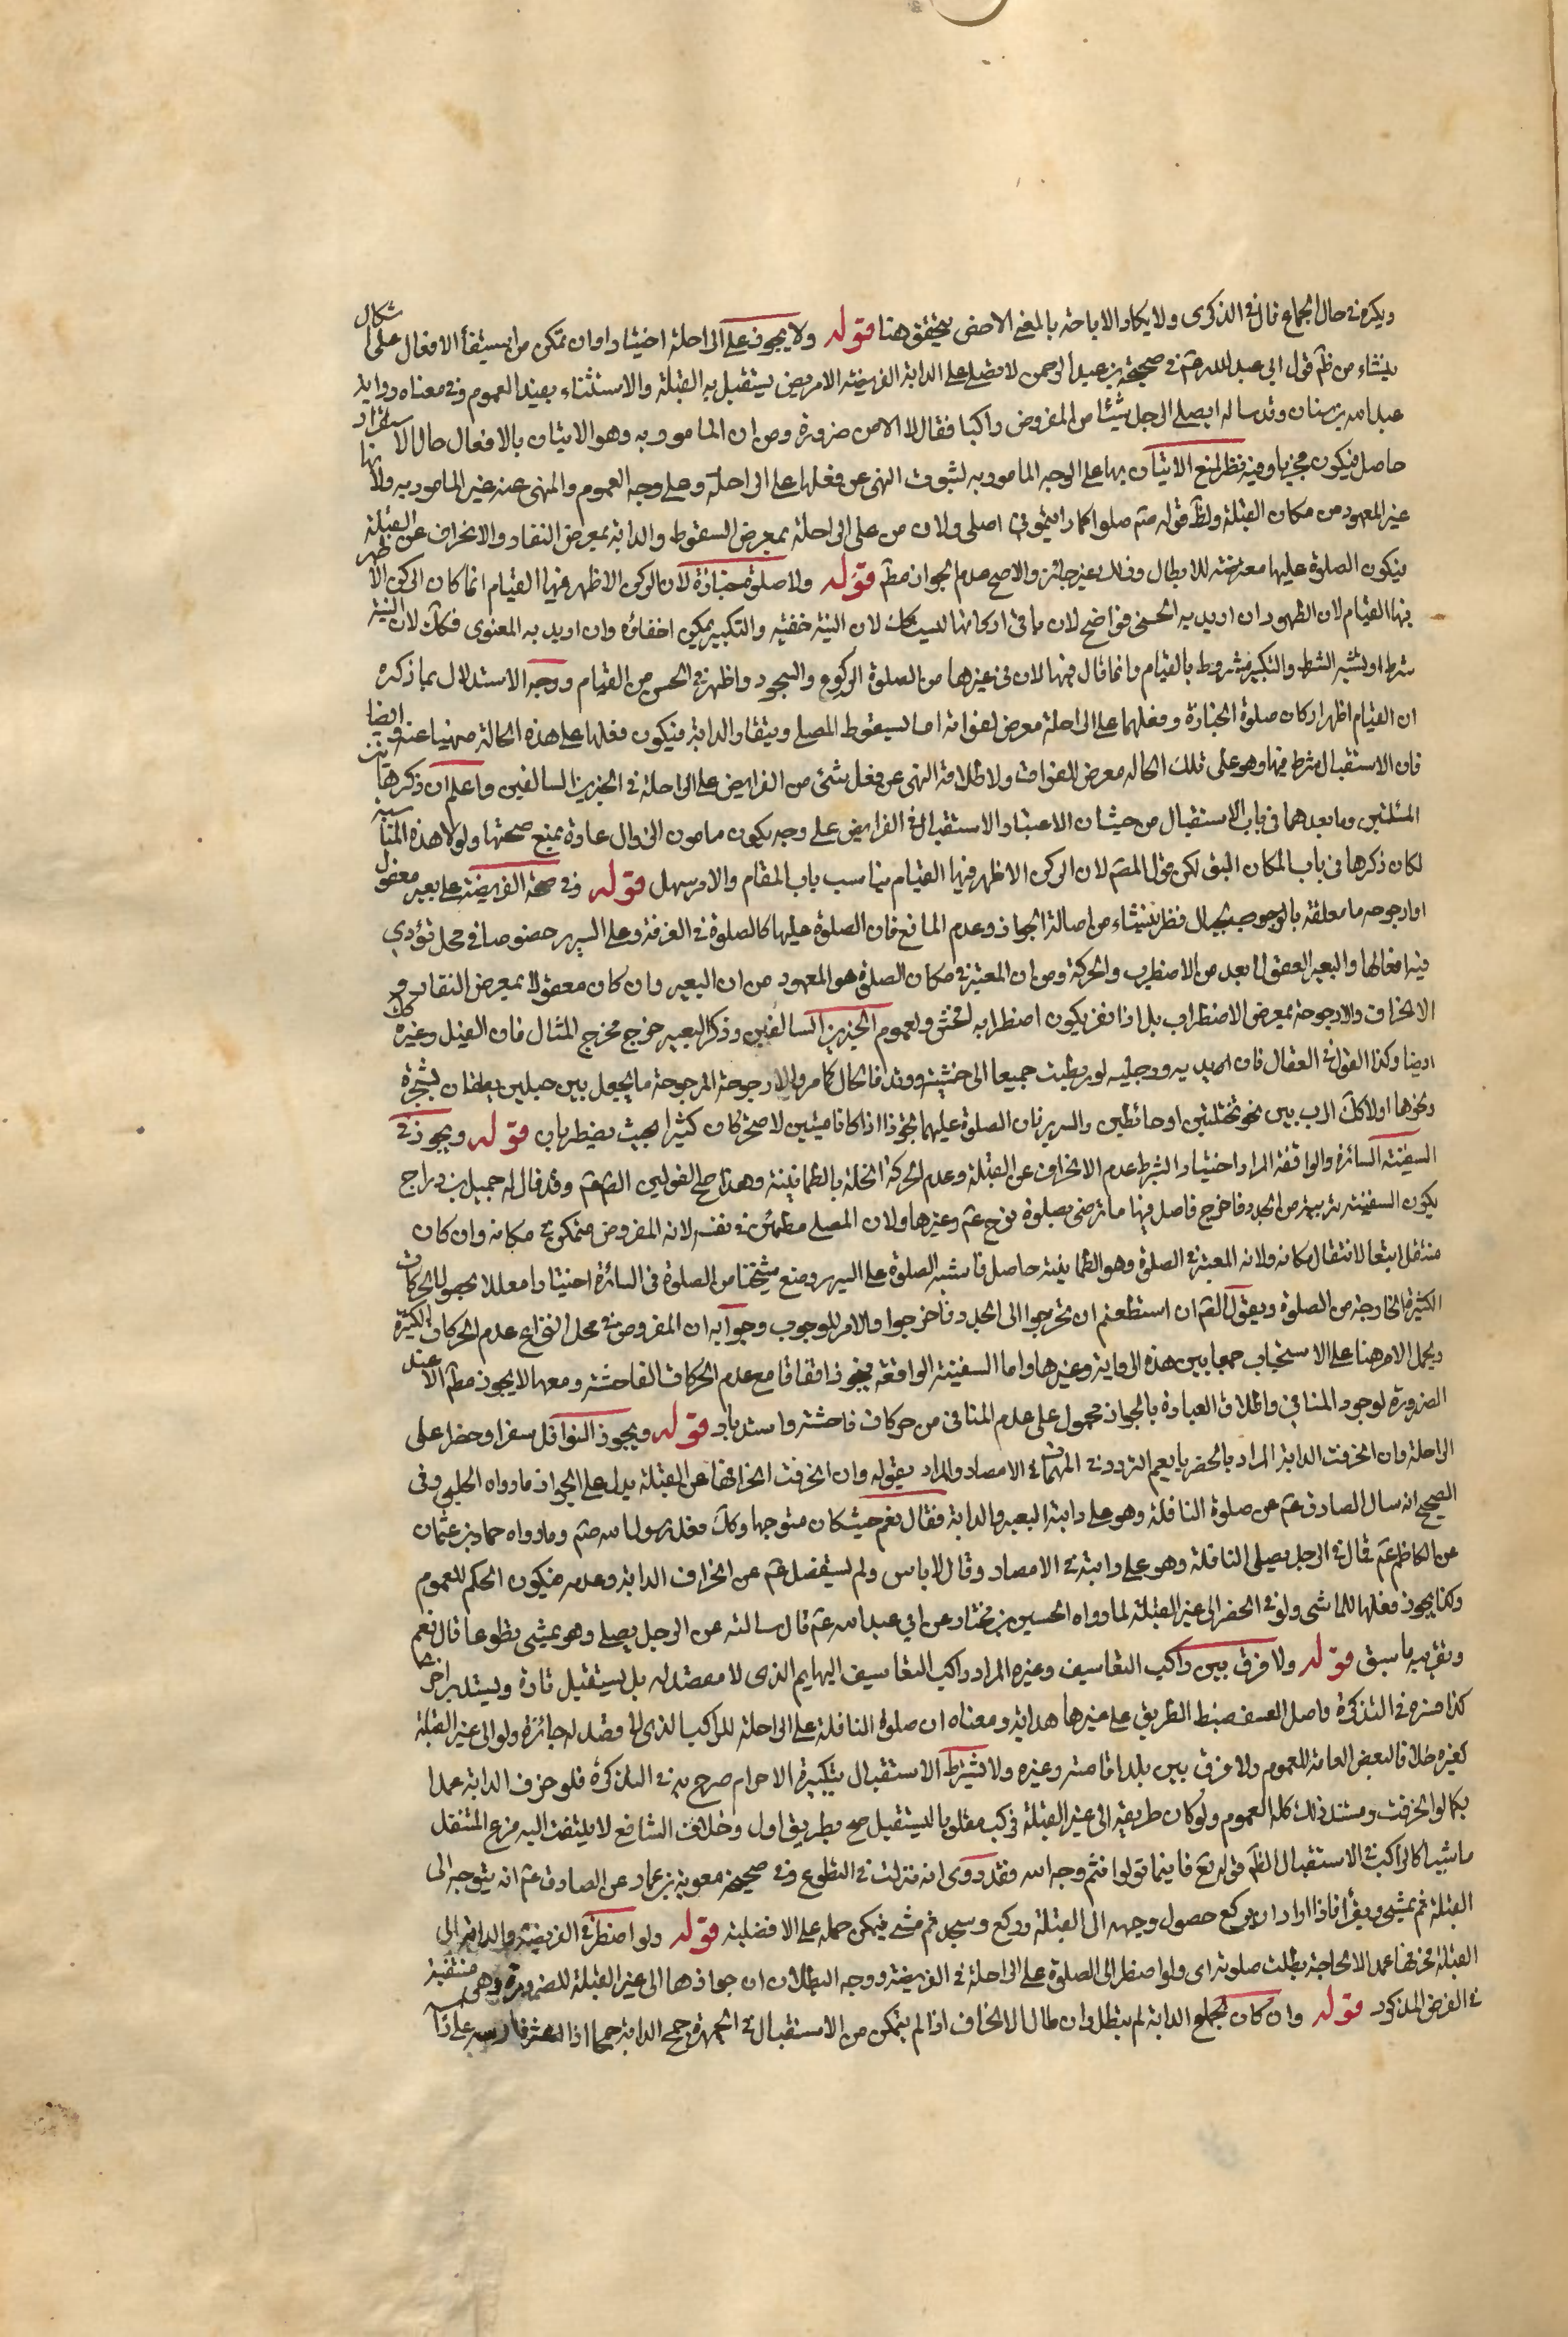 ويكره في حال الجماع قال في الذكرى ولا يكاد الاباحة بالمعنى الاخص يتحقق هنا قوله ولا يجوز على الراحلة اختيارا وان تمكن من استيفاء الافعال على اشكال
ينشاء من ظ قول ابي عبد الله عم في صحيحة بن عبد الرحمن لا يصلي على الدابة الفريضة الا مريض يستقبل به القبلة والاستثناء يفيد العموم وفي معناه رواية
عبد الله بن سنان وقد ساله ايصلي الرجل شيئا من المفروض راكبا فقال لا الا من ضرورة ومن ان المامور به وهو الاتيان بالافعال حال الاستقرار
حاصل فيكون مجزيا وفيه نظر لمنع الاتيان بها على الوجه المامور به لثبوت النهي عن فعلها على الراحلة وعلى وجه العموم والمنهى عنه غير المامور به ولانها
غير المعهود من مكان القبلة ولظ قوله صم صلوا كما رايتموني اصلي ولان من على الراحلة بمعرض السقوط والدابة بمعرض النفار والانحراف عن القبلة
فيكون الصلوة عليها معرضة للابطال وذلك غير جائز والاصح عدم الجواز مطم قوله ولا صلوة جنازة لان الركن الاظهر فيها القيام انما كان الركن الاظهر
فيها القيام لان الظهور ان اريد به الحسي فواضح لان باقي اركانها ليست كك لان النية خفية والتكبير يمكن اخفاؤه وان اريد به المعنوى فكك لان النية
شرط او يشبه الشرط والتكبير مشروط بالقيام وانما قال فيها لان في غيرها من الصلوة الركوع والسجود واظهر في الحس من القيام ووجه الاستدلال بما ذكره
ان القيام اظهر اركان صلوة الجنازة وفعلها على الراحلة معرض لفواته اما لسقوط المصلي او نفار الدابة فيكون فعلها على هذه الحالة منهيا عنه وايضا
فان الاستقبال شرط فيها وهو على تلك الحاله معرض للفوات ولاطلاق النهي عن فعل شئ من الفرايض على الراحلة في الخبرين السالفين واعلم ان ذكر هاتين
المسئلتين وما بعدهما في باب الاستقبال من حيث ان الاعتبار الاستقبال في الفرايض على وجه يكون مامون الزوال عادة يمنع صحتها ولولا هذه المناسبة
لكان ذكرها في باب المكان اليق لكن قول المصم لان الركن الاظهر فيها القيام يناسب باب المقام والامر سهل قوله وفي صحة الفريضة على بعير معقول
او ارجوحه معلقة بالحبال نظر ينشاء من اصالة الجواز وعدم المانع فان الصلوة عليها كالصلوة في الغرفة وعلى السرير خصوصا في محل تؤدي
فيه افعالها والبعير المعقول ابعد من الاضطراب والحركة ومن ان المعتبر في مكان الصلوة هو المعهود من ان البعير وان كان معقولا بمعرض النفار و
الانحراف والارجوحة بمعرض الاضطراب بل اذا نفر يكون اضطرابه افحش ولعموم الخبرين السالفين وذكر البعير خرج مخرج المثال فان الفيل وغيره كك
ايضا وكذا القول في العقال فان يديه ورجليه لو ربطت جميعا الى خشبة ووتد فالحال كما مر والارجوحة المرجوحة ما يجعل بين حبلين يعلقان بشجرة
ونحوها اولا كان الرب بين نحو نخلتين او حائطين والسرير فان الصلوة عليهما يجوز اذا كانا مثبتين لا متحركان كثيرا بحيث يضطربان قوله ويجوز في
السفينة السائرة والواقفة المراد اختيارا بشرط عدم الانحراف عن القبلة وعدم الحركة المخلة بالطمانينة وهذا اصح القولين لقوله عم وقد قال له جميل بن دراج
يكون السفينة قريبة من الجدد فاخرج فاصلي فيها ما ترضى بصلوة نوح عم وغيرها ولان المصلي مطمئن في نفسه لانه المفروض متمكن في مكانه وان كان
منتقلا تبعا لانتقال مكانه ولانه المعتبر في الصلوة وهو الطمانينة حاصل فاشبه الصلوة على السرير ومنع شيخنا من الصلوة في السائرة اختيارا معللا بحصول الحركات
الكثيرة الخارجة من الصلوة وبقول الصم ان استطعتم ان تخرجوا الى الجدد فاخرجوا والامر للوجوب وجوابه ان المفروض في محل النزاع عدم الحركات الكثيرة
ويحمل الامر هنا على الاستحباب جمعا بين هذه الرواية وغيرها واما السفينة الواقفة فيجوز اتفاقا مع عدم الحركات الفاحشة ومعها لا يجوز مطم الا عند
الضرورة لوجود المنافي واطلاق العبادة بالجواز محمول على عدم المنافي من حركات فاحشة واستدبار قوله ويجوز النوافل سفرا وحضرا على
الراحلة وان انحرفت الدابة المراد بالحضر ما يعم التردد في المهمات في الامصار والمراد بقوله وان انحرفت انحرافها عن القبلة يدل على الجواز ما رواه الحلبي وفي
الصحيح انه سال الصادق عم عن صلوة النافلة وهو على دابته البعير والدابة فقال نعم حيث كان متوجها وكك فعل رسول الله صم وما رواه حماد بن عثمان
عن الكاظم عم قال في الرجل يصلي النافلة وهو على دابته في الامصار وقال لا باس ولم يستفصل عم عن انحراف الدابة وعدمه فيكون الحكم للعموم
وكذا يجوز فعلها للماشى ولو في الحضر الى غير القبلة لما رواه الحسين بن مختار عن ابي عبد الله عم قال سالته عن الرجل يصلي وهو يمشى تطوعا قال نعم
وتقريبه ما سبق قوله ولا فرق بين راكب التعاسيف وغيره المراد راكب التعاسيف الهايم الذى لا مقصد له بل يستقبل تارة ويستدبر اخرى
كذا فسره في التذكرة واصل العسف ضبط الطريق على غيرها هداية ومعناه ان صلوة النافلة على الراحلة للراكب الذى لا مقصد له جائزة ولو الى غير القبلة
كغيره خلافا لبعض العامة للعموم ولا فرق بين بلد اقامته وغيره ولا يشترط الاستقبال بتكبيرة الاحرام صرح به في التذكرة فلو حرف الدابة عمدا
كما لو انحرفت ومستند ذلك كله العموم ولو كان طريقه الى غير القبلة فركب مقلوبا ليستقبل صح بطريق اولى وخلاف الشافعى لا يلتفت اليه فرع المتنفل
ماشيا كالراكب في الاستقبال لظم قوله تع فاينما تولوا فثم وجه الله فقد روى انه نزلت في التطوع وفي صحيحة معوية بن عمار عن الصادق عم انه يتوجه الى
القبلة ثم يمشى ويقرأ فاذا اراد ان يركع حصول وجهه الى القبلة وركع وسجد ثم مشى فيمكن حمله على الافضلية قوله ولو اضطر في الفريضة والدابة الى
القبلة فحرفها عمدا لا لحاجة بطلت صلوته اى ولو اضطر الى الصلوة على الراحلة في الفريضة ووجه البطلان ان جوازها الى غير القبلة للضرورة وهى منتفية
في الفرض المذكور قوله وان كان لجماح الدابة لم يبطل وان طال الانحراف اذا لم يتمكن من الاستقبال في الجمهرة جمح الدابة جماحا اذا